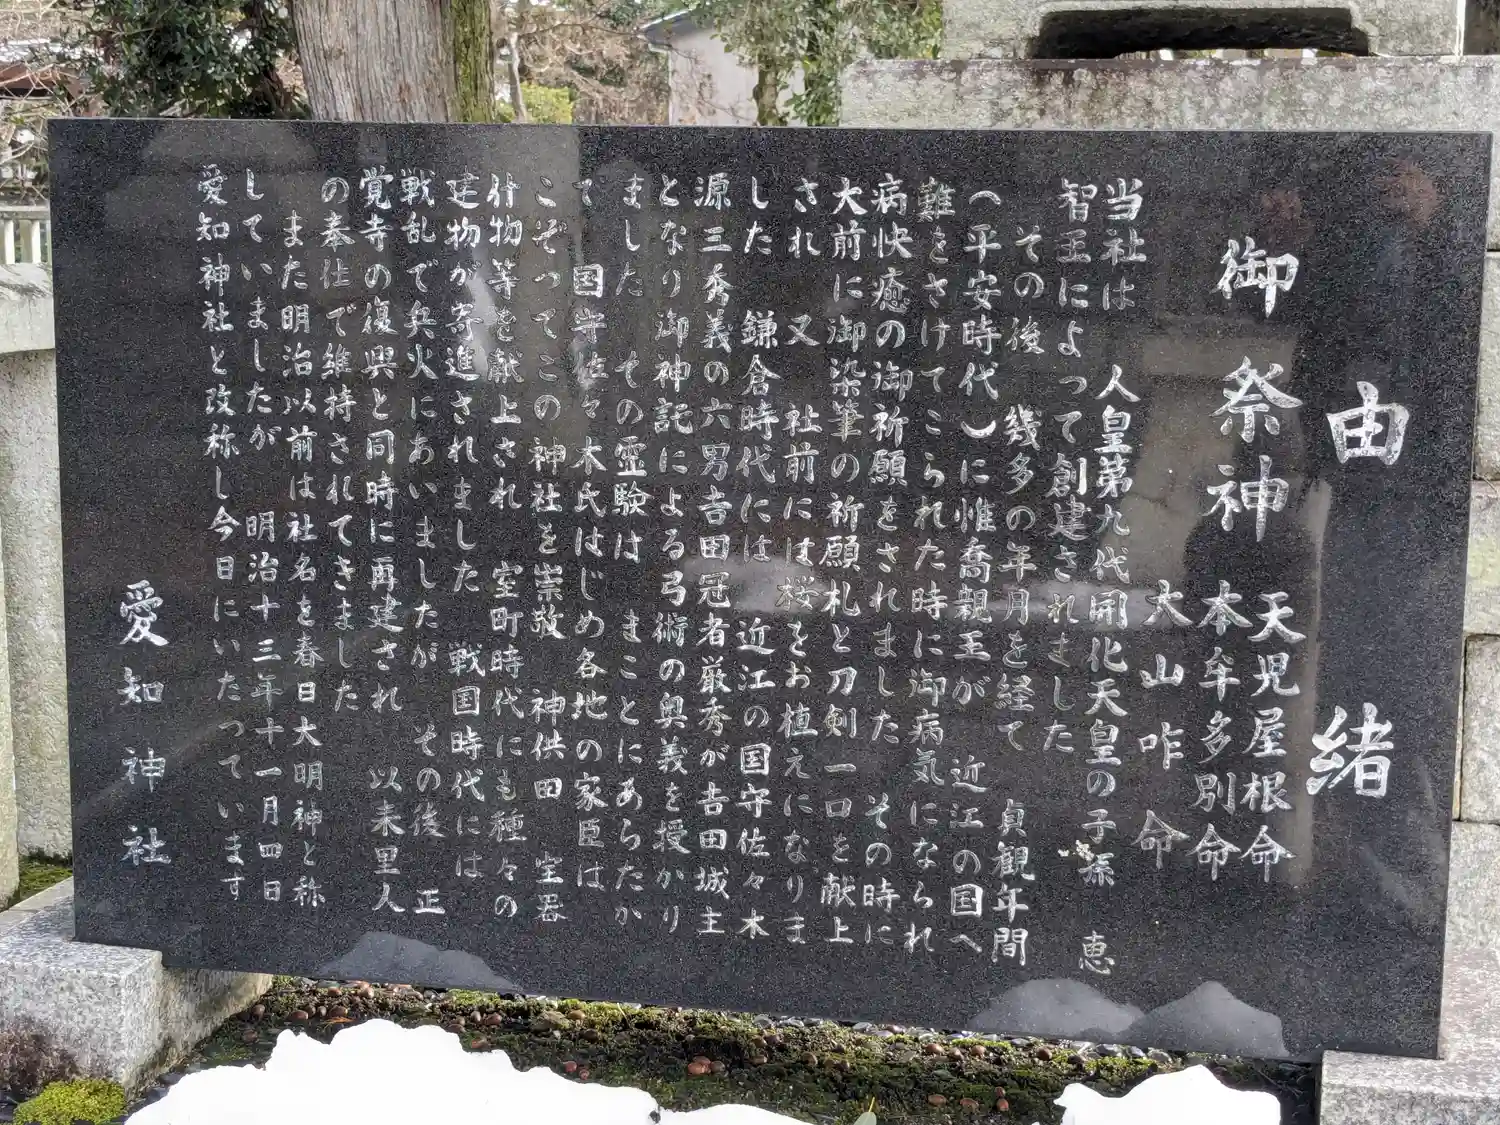 由緒
御祭神 天児屋根命
本牟多別命
大山咋命
当社は 人皇第九代開化天皇の子孫 恵
智王によって創建されました
その後 幾多の年月を経て 貞観年間
(平安時代)に惟喬親王が 近江の国へ
難をさけてこられた時に御病気になられ
病快癒の御祈願をされました その時に
大前に御染筆の祈願札と刀剣一口を献上
され 又 社前には桜をお植えになりま
した 鎌倉時代には 近江の国守佐々木
源三秀義の六男吉田冠者厳秀が吉田城主
となり御神託による弓術の奥義を授かり
ました その霊験は まことにあらたか
て 国守佐々木氏はじめ各地の家臣は
こぞってこの神社を崇敬 神供田 宝器
什物等を献上され 室町時代にも種々の
建物が寄進されました 戦国時代には
戦乱で兵火にあいましたが その後 正
覚寺の復興と同時に再建され 以来里人
の奉仕で維持されてきました
また明治以前は社名を春日大明神と称
していましたが 明治十三年十一月四日
愛知神社と改称し今日にいたっています
愛知神社